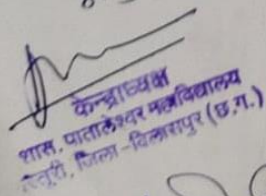 केन्द्राध्यक्ष
शास. पातालेश्वर महाविद्यालय
जिला-बिलासपुर (छ.ग.)